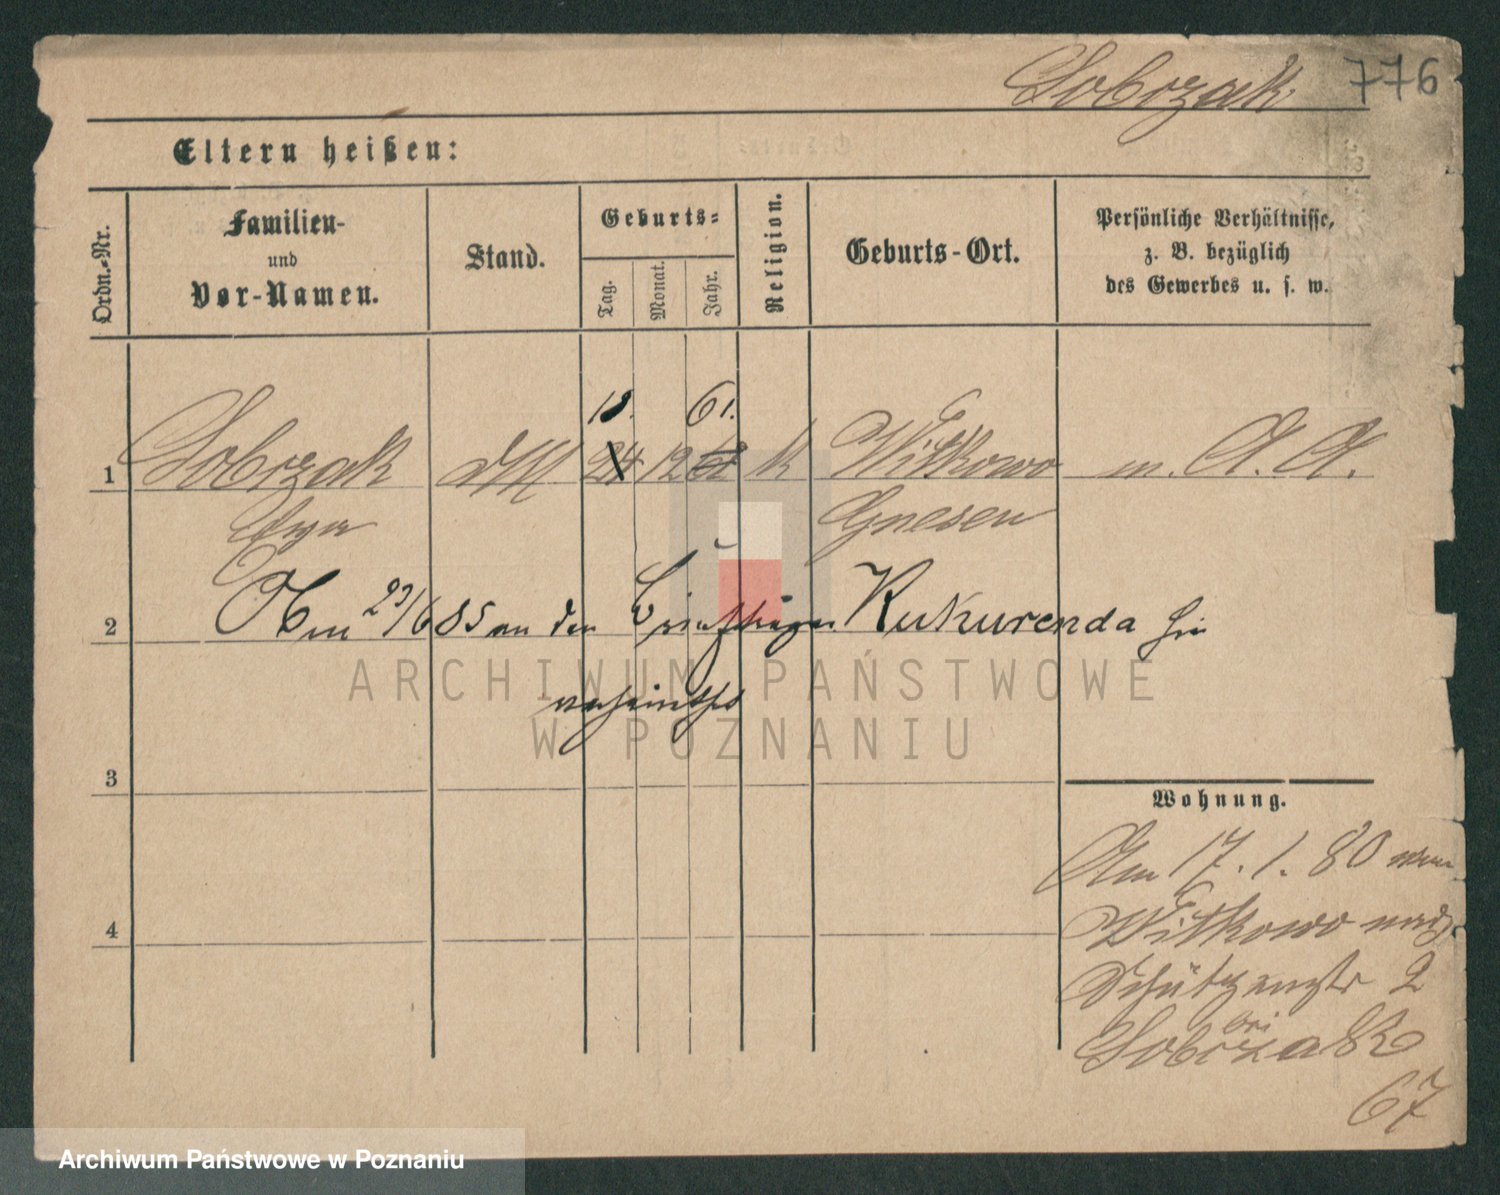 Sobczak 776
Eltern heißen:
Ordn.-Nr.
Familien-
und
Vor-Namen.
Stand.
Geburts-
Tag.
Monat.
Jahr.
Religion.
Geburts-Ort.
Persönliche Verhältnisse,
z. B. bezüglich
des Gewerbes u. s. w.
18. 61.
1 Sobczak dM 24 12 k Witkowo m. A. A.
Ewa Gnesen
2 Am 23/6 85 an den Briefträger Kukurenda hier
verheirathet
3
Wohnung.
Am 17. 1. 80 von
Witkowo nach
4
Schützenstr 2
bei
Sobczak
67
ARCHIWUM PAŃSTWOWE
W POZNANIU
Archiwum Państwowe w Poznaniu